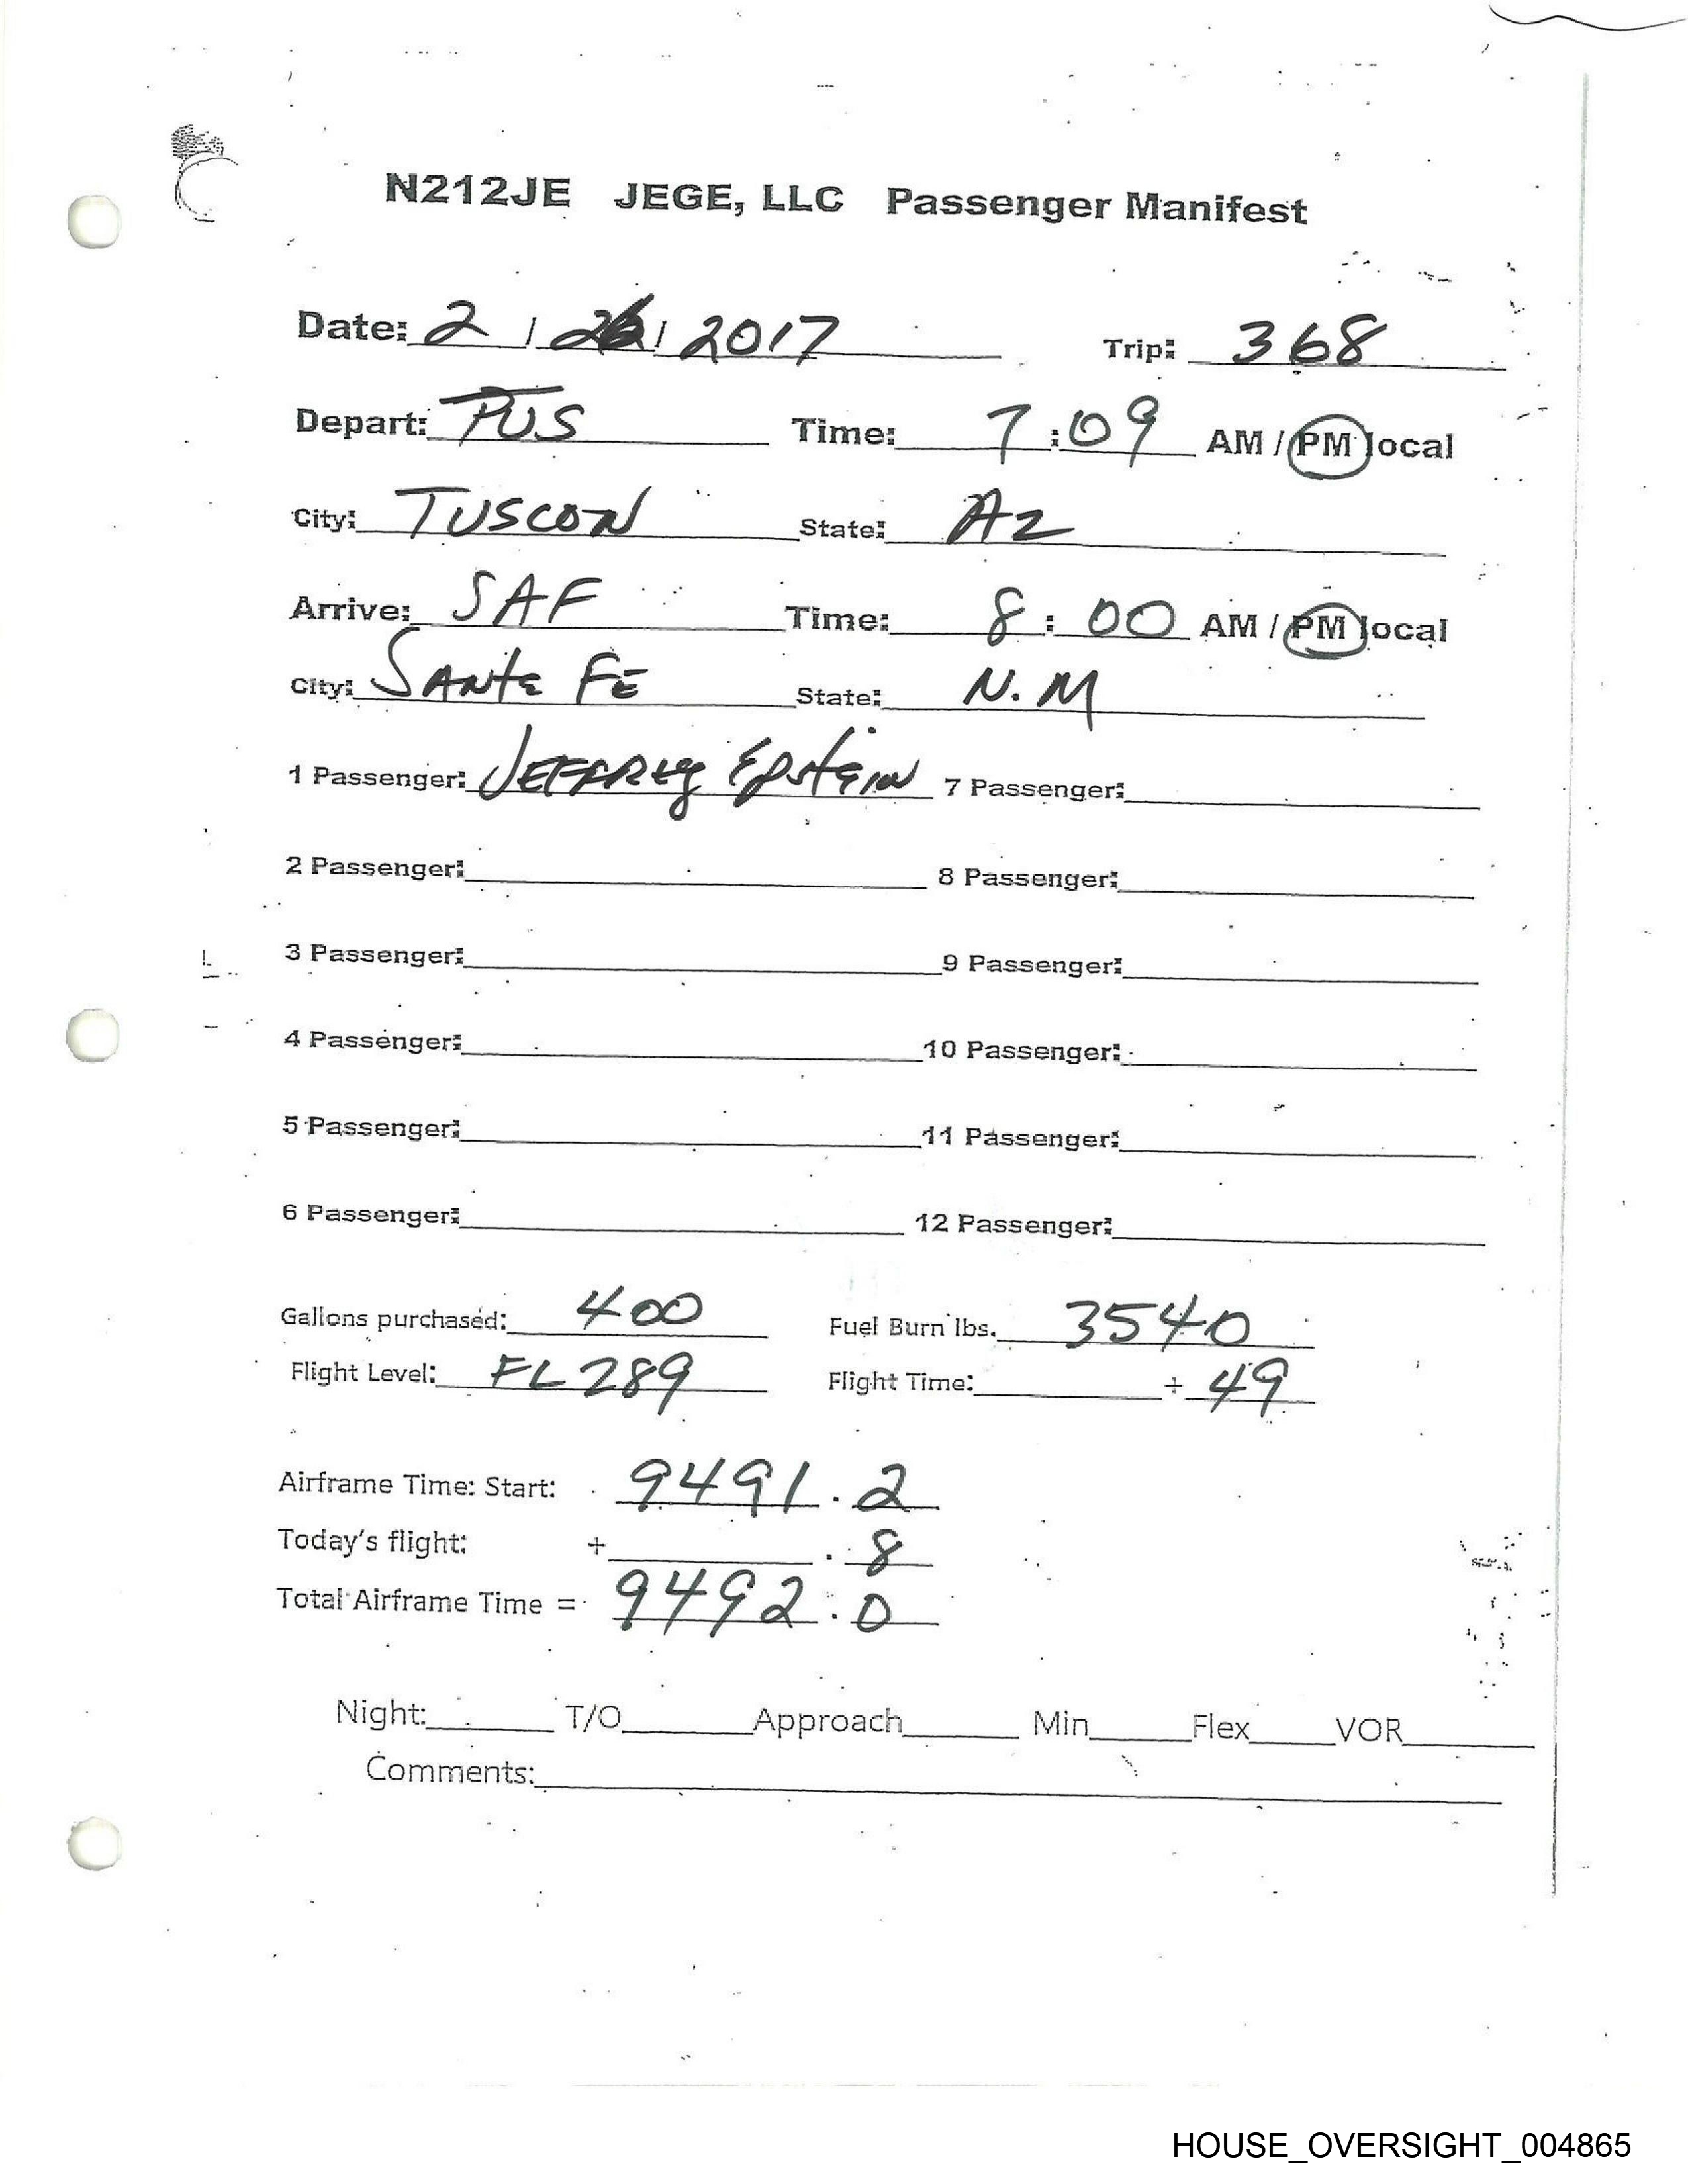 N212JE JEGE, LLC Passenger Manifest
Date: 2 / / 2017 Trip: 368
Depart: TUS Time: 7:09 AM / PM local
City: TUSCON State: AZ
Arrive: SAF Time: 8:00 AM / PM local
City: SANTE FE State: N.M
1 Passenger: JEFFREY EPSTEIN 7 Passenger:
2 Passenger: 8 Passenger:
3 Passenger: 9 Passenger:
4 Passenger: 10 Passenger:
5 Passenger: 11 Passenger:
6 Passenger: 12 Passenger:
Gallons purchased: 400 Fuel Burn lbs. 3540
Flight Level: FL 289 Flight Time: + 49
Airframe Time: Start: 9491.2
Today's flight: + .8
Total Airframe Time = 9492.0
Night: T/O Approach Min Flex VOR
Comments:
HOUSE_OVERSIGHT_004865